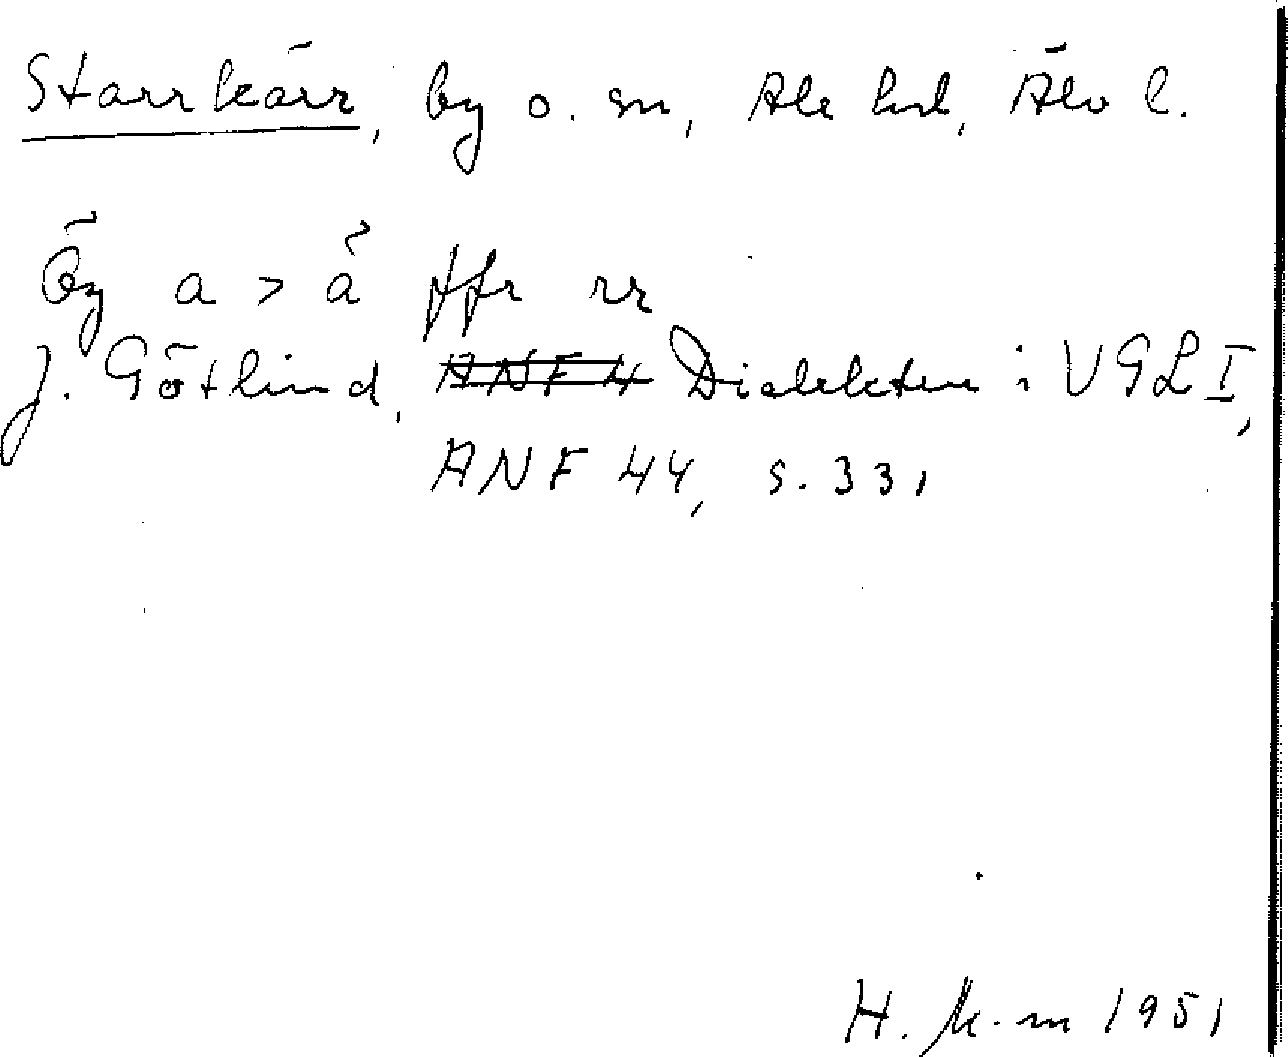 Starrkärr, by o. sn, Ale hd, Älv l.
Ög a > å ffr rr
J. Götlind, ANF 4 Dialekten i VGL I,
ANF 44, s. 331
H. K-m 1951